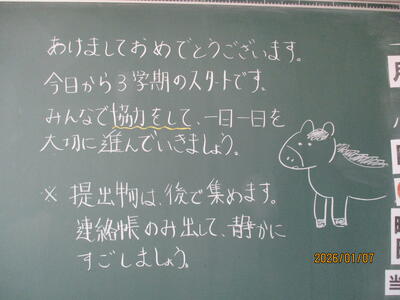 あけましておめでとうございます。
今日から3学期のスタートです。
みんなで協力をして、一日一日を
大切に進んでいきましょう。
※ 提出物は、後で集めます。
連絡帳のみ出して、静かに
すごしましょう。
2026/01/07
月
当